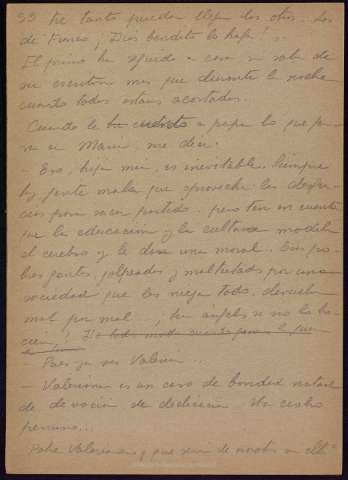 55 tre tanto pueden llegar los otros. Los
de Franco ¡Dios bendito lo haga! ..
El primo ha seguido a casa y no sale de
su escritorio mas que durante la noche
cuando todos estamos acostados...
Cuando le cuento a papa lo que pasa
en Mauri, me dice:
- Eso, hija mia, es inevitable. Siempre
hay gente mala que aprovecha las desgra-
cias para sacar partido. pero ten en cuenta
que la educación y la cultura modela
el cerebro y le da una moral.. Esa po-
bres gentes, golpeados y maltratados por una
sociedad que les niega todo, devuelven
mal por mal...
Pues ya ves Valeria...
- Valeriana es un caso de bondad natural
de devoción de dedicación. Un cerebro
perruno...
Pobre Valeriana y que sera de nosotros sin ella?